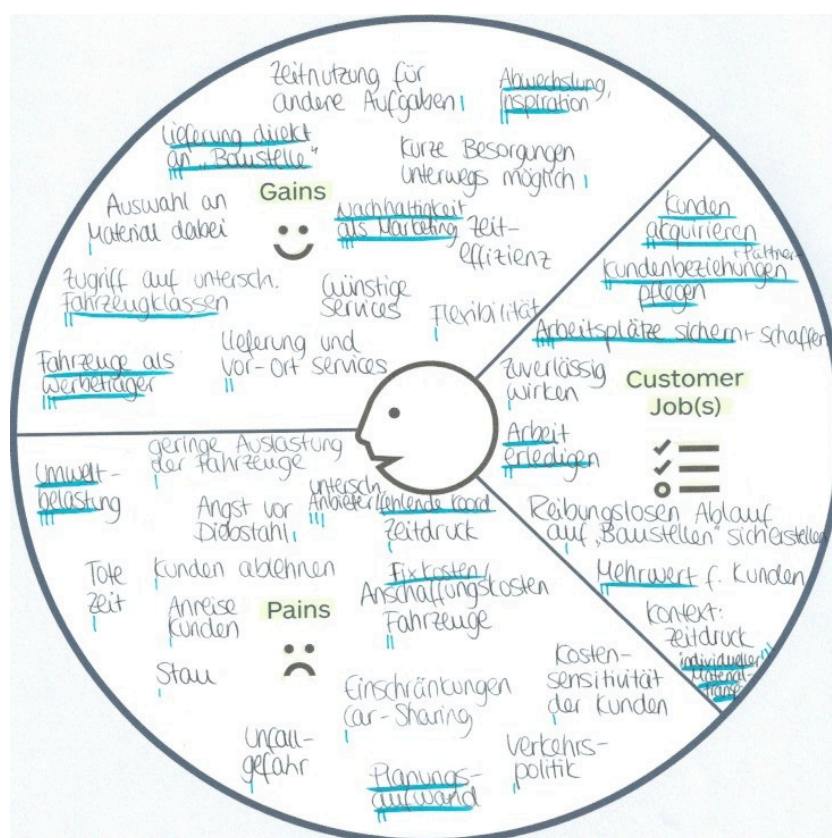 Zeitnutzung für
andere Aufgaben
Abwechslung,
Inspiration
Lieferung direkt
an „Baustelle“
Kurze Besorgungen
unterwegs möglich
Gains
Auswahl an
Material dabei
Nachhaltigkeit
als Marketing
Zeit-
effizienz
Zugriff auf untersch.
Fahrzeugklassen
Günstige
Services
Flexibilität
Fahrzeuge als
Werbeträger
Lieferung und
vor-Ort services
Kunden
akquirieren
+ Partner-
Kundenbeziehungen
pflegen
Arbeitsplätze sichern + schaffen
Zuverlässig
wirken
Customer
Job(s)
Arbeit
erledigen
Reibungslosen Ablauf
auf „Baustellen“ sicherstellen
Mehrwert f. Kunden
Kontext:
Zeitdruck
individueller
Material-
Umwelt-
belastung
geringe Auslastung
der Fahrzeuge
Angst vor
Diebstahl
untersch.
Anbieter
fehlende Koord
Zeitdruck
Tote
Zeit
Kunden ablehnen
Anreise
Kunden
Pains
Fixkosten/
Anschaffungskosten
Fahrzeuge
Stau
Einschränkungen
Car-Sharing
Kosten-
sensitivität
der Kunden
Unfall-
gefahr
Planungs-
aufwand
Verkehrs-
politik